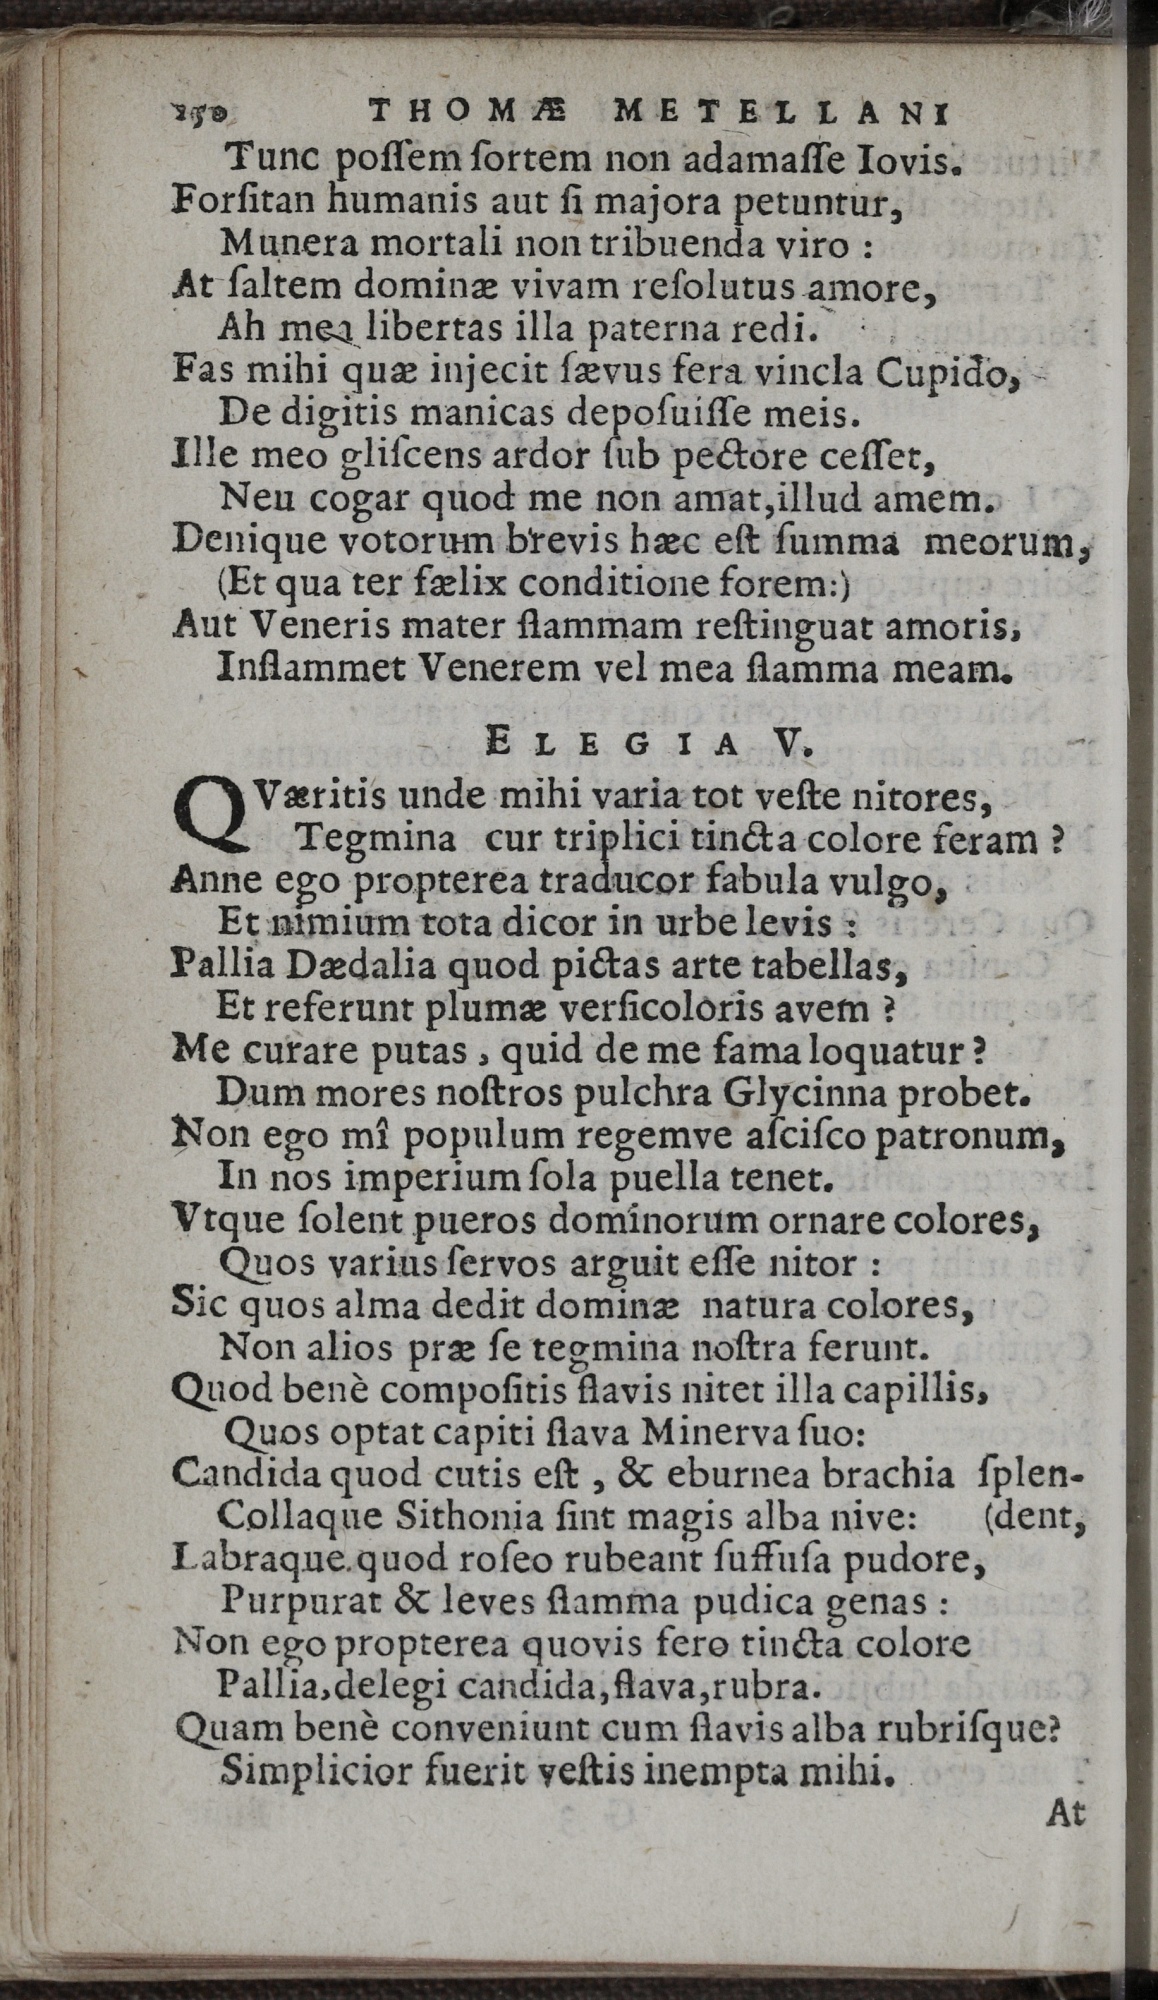 250 THOMÆ METELLANI
Tunc poſſem ſortem non adamaſſe Iovis.
Forſitan humanis aut ſi majora petuntur,
Munera mortali non tribuenda viro :
At ſaltem dominæ vivam reſolutus amore,
Ah mea libertas illa paterna redi.
Fas mihi quæ injecit ſævus fera vincla Cupido,
De digitis manicas depoſuiſſe meis.
Ille meo gliſcens ardor ſub pectore ceſſet,
Neu cogar quod me non amat, illud amem.
Denique votorum brevis hæc eſt ſumma meorum,
(Et qua ter fælix conditione forem:)
Aut Veneris mater flammam reſtinguat amoris,
Inflammet Venerem vel mea flamma meam.
ELEGIA V.
QVæritis unde mihi varia tot veſte nitores,
Tegmina cur triplici tincta colore feram ?
Anne ego propterea traducor fabula vulgo,
Et nimium tota dicor in urbe levis :
Pallia Dædalia quod pictas arte tabellas,
Et referunt plumæ verſicoloris avem ?
Me curare putas, quid de me fama loquatur ?
Dum mores noſtros pulchra Glycinna probet.
Non ego mî populum regemve aſciſco patronum,
In nos imperium ſola puella tenet.
Vtque ſolent pueros dominorum ornare colores,
Quos varius ſervos arguit eſſe nitor :
Sic quos alma dedit dominæ natura colores,
Non alios præ ſe tegmina noſtra ferunt.
Quod benè compoſitis flavis nitet illa capillis,
Quos optat capiti flava Minerva ſuo:
Candida quod cutis eſt, & eburnea brachia ſplen-
Collaque Sithonia ſint magis alba nive: (dent,
Labraque quod roſeo rubeant ſuffuſa pudore,
Purpurat & leves flamma pudica genas :
Non ego propterea quovis fero tincta colore
Pallia, delegi candida, flava, rubra.
Quam benè conveniunt cum flavis alba rubriſque?
Simplicior fuerit veſtis inempta mihi.
At